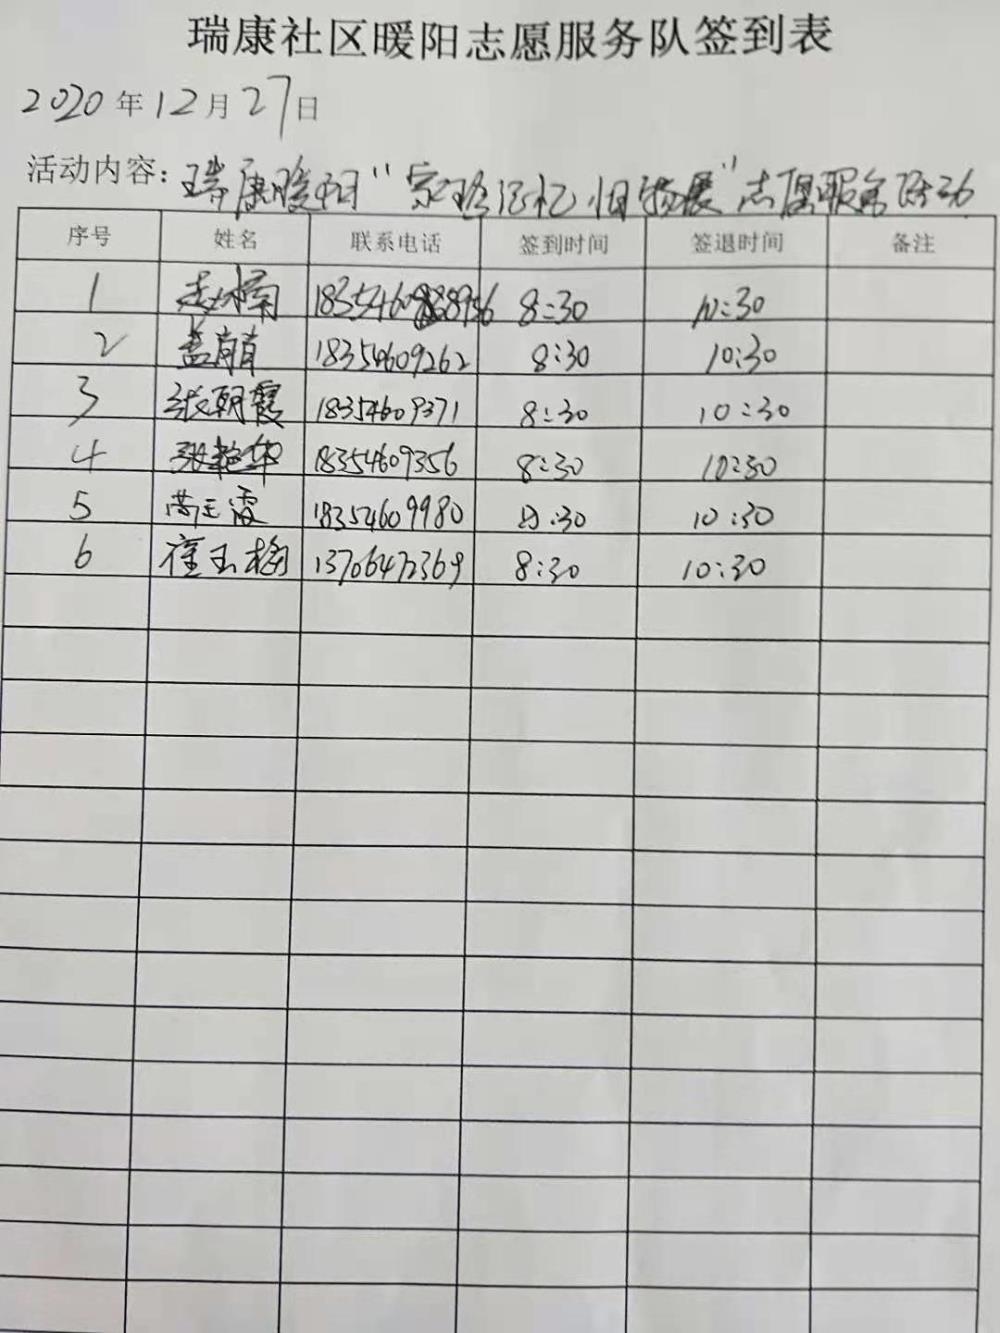 瑞康社区暖阳志愿服务队签到表
2020年12月27日
活动内容：瑞康暖阳"家 记忆 旧物展"志愿服务活动
序号 姓名 联系电话 签到时间 签退时间 备注
1 赵楠 8:30 10:30
2 盖 18354609262 8:30 10:30
3 张朝霞 18354609371 8:30 10:30
4 张艳华 18354609356 8:30 10:30
5 霞 18354609980 8:30 10:30
6 崔玉梅 13706472369 8:30 10:30